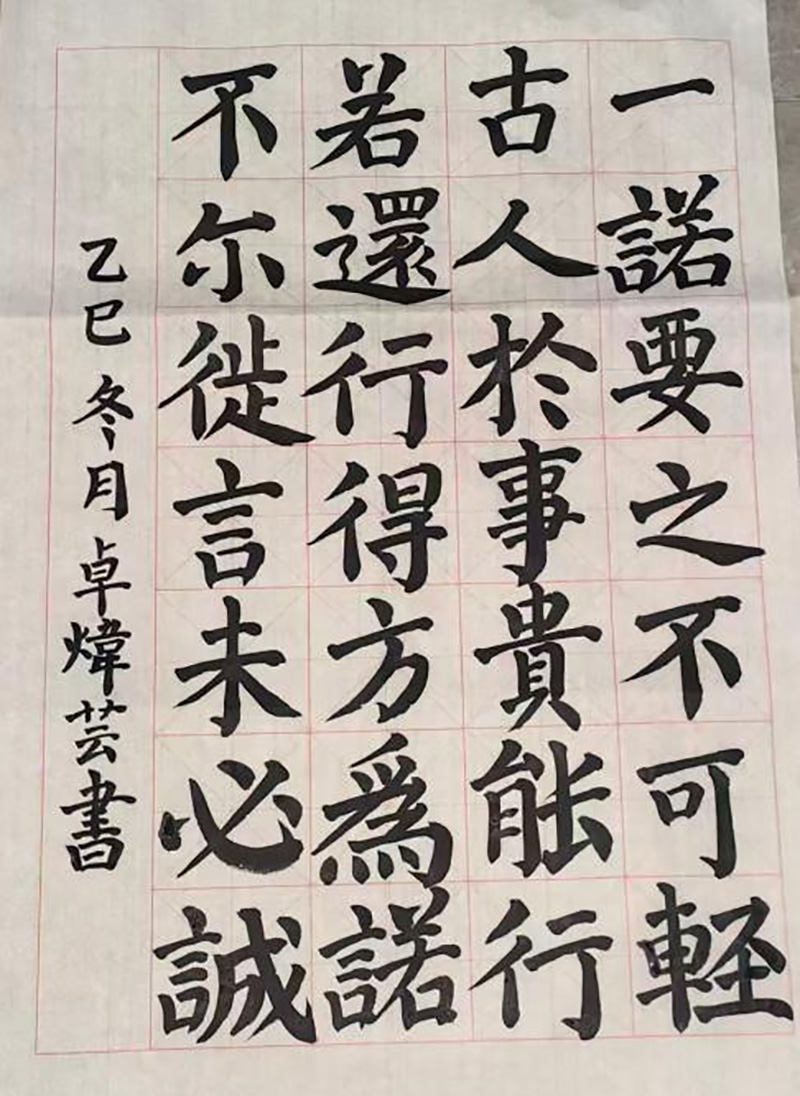 一諾要之不可軽
古人於事貴能行
若還行得方為諾
不尔徙言未必誠
乙巳冬月卓煒芸書